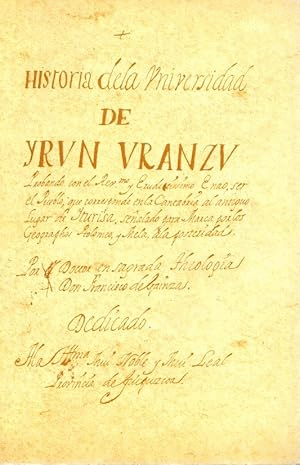 +
HIstoria dela Vniversidad
DE
YRVN VRANZV
Probando con el Rev.mo y Eruditissimo Enao, ser
el Pueblo, que corresponde en la Cantabria, al antiguo
Lugar de Iturisa, señalado para Marca por los
Geographos Ptolomeo, y Mela, à la posteridad.
Por el Doctor en sagrada theologia
Don Francisco de Gainza.
Dedicado.
A la Ill.ma Muy Noble y Muy Leal
Provincia de Guipuzcoa.